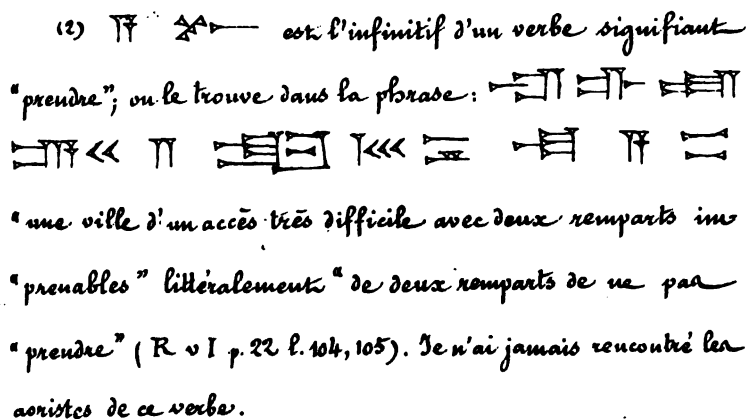 (2) est l'infinitif d'un verbe signifiant
"prendre"; on le trouve dans la phrase:
"une ville d'un accès très difficile avec deux remparts im-
"prenables" littéralement "de deux remparts de ne pas
"prendre" (R v I p. 22 l. 104, 105). Je n'ai jamais rencontré les
aoristes de ce verbe.